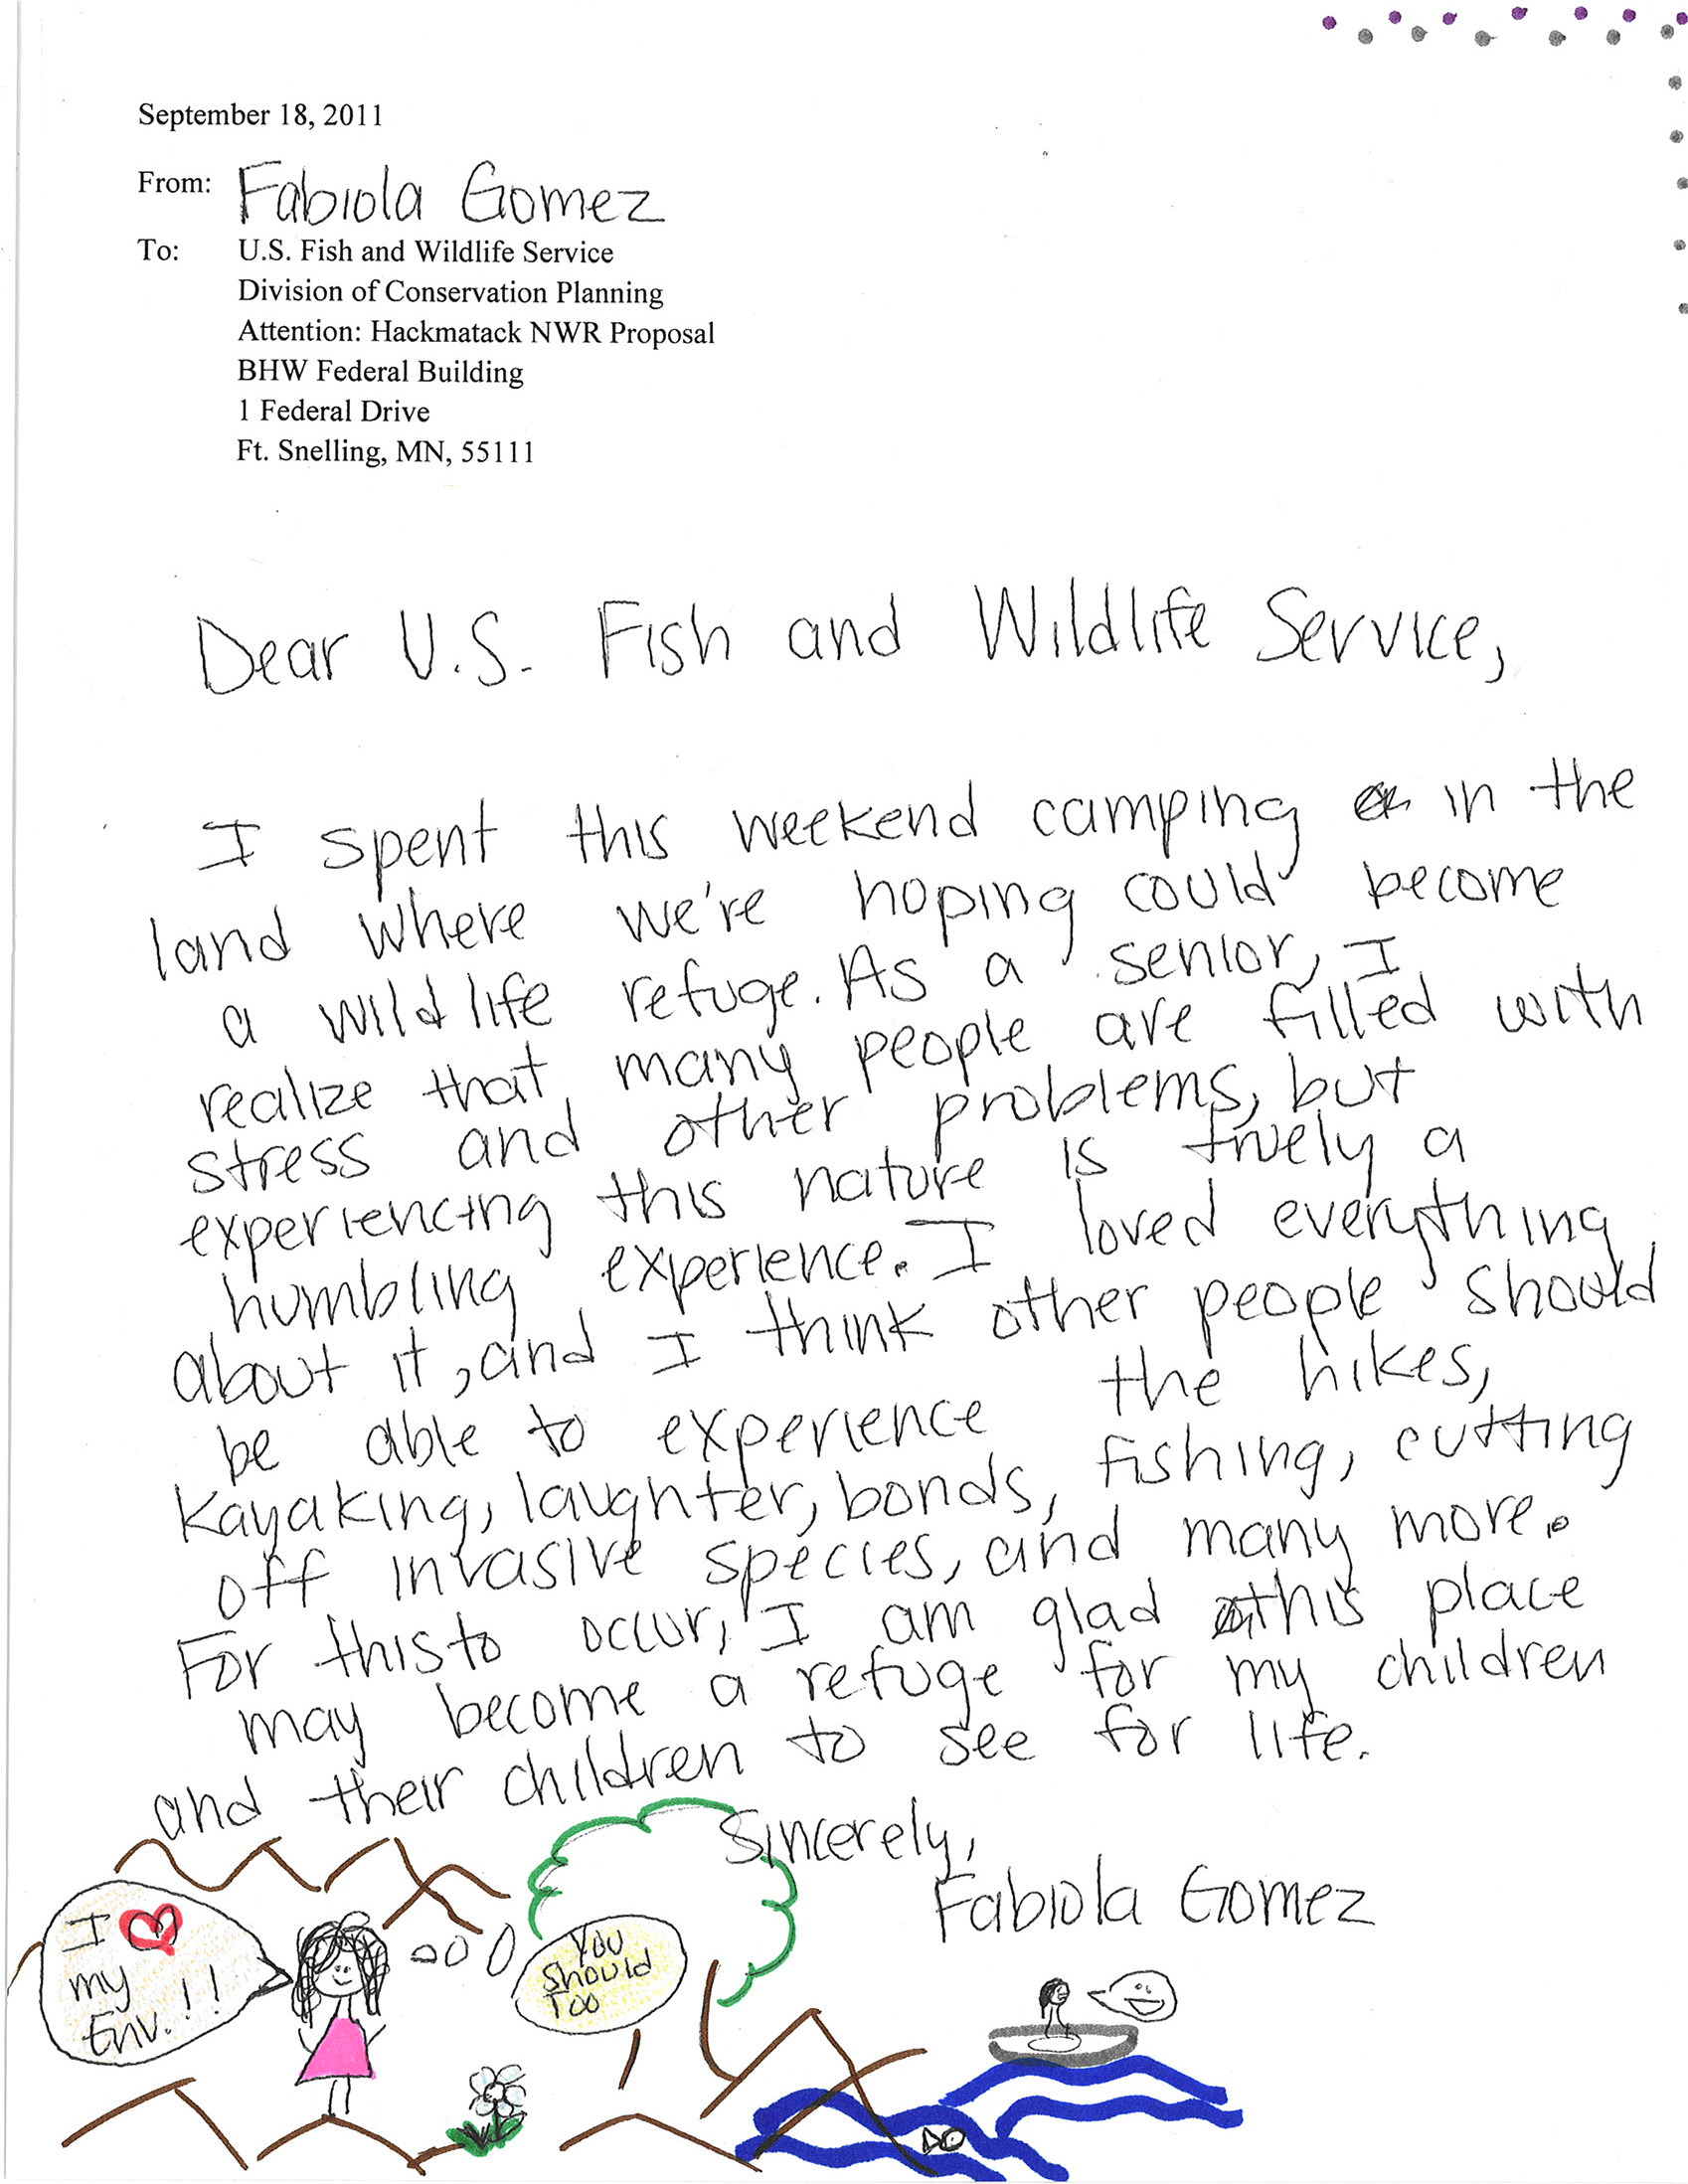 September 18, 2011
From: Fabiola Gomez
To: U.S. Fish and Wildlife Service
Division of Conservation Planning
Attention: Hackmatack NWR Proposal
BHW Federal Building
1 Federal Drive
Ft. Snelling, MN, 55111
Dear U.S. Fish and Wildlife Service,
I spent this weekend camping in the
land where we're hoping could become
a wildlife refuge. As a senior, I
realize that many people are filled with
stress and other problems, but
experiencing this nature is truely a
humbling experience. I loved everything
about it, and I think other people should
be able to experience the hikes,
kayaking, laughter, bonds, fishing, cutting
off invasive species, and many more.
For this to occur, I am glad this place
may become a refuge for my children
and their children to see for life.
Sincerely,
Fabiola Gomez
I ❤ my Env.!!
You
Should
Too